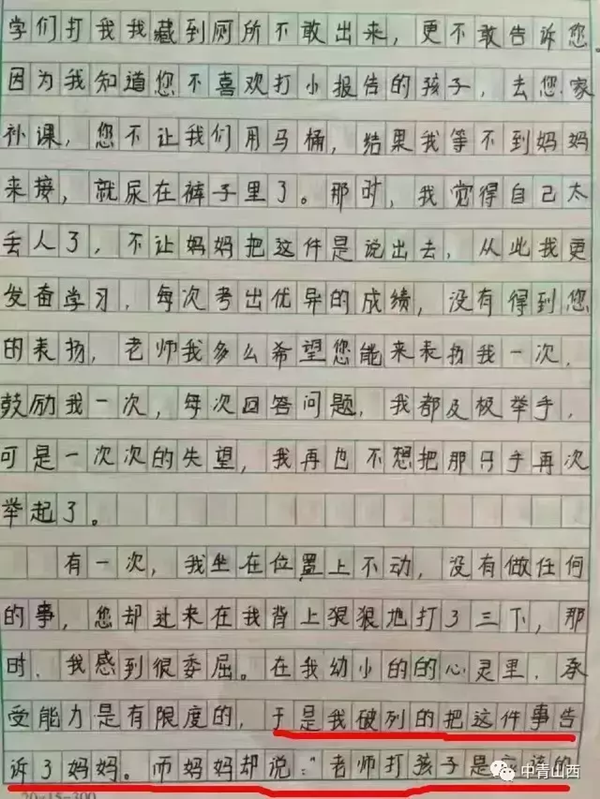 学们打我我藏到厕所不敢出来，更不敢告诉您。
因为我知道您不喜欢打小报告的孩子，去您家
补课，您不让我们用马桶，结果我等不到妈妈
来接，就尿在裤子里了。那时，我觉得自己太
丢人了，不让妈妈把这件是说出去，从此我更
发奋学习，每次考出优异的成绩，没有得到您
的表扬，老师我多么希望您能来表扬我一次，
鼓励我一次，每次回答问题，我都及极举手，
可是一次次的失望，我再也不想把那只手再次
举起了。
有一次，我坐在位置上不动，没有做任何
的事，您却过来在我背上狠狠地打了三下，那
时，我感到很委屈。在我幼小的的心灵里，承
受能力是有限度的，于是我破列的把这件事告
诉了妈妈。而妈妈却说：“老师打孩子是应该的
中青山西
20×15=300